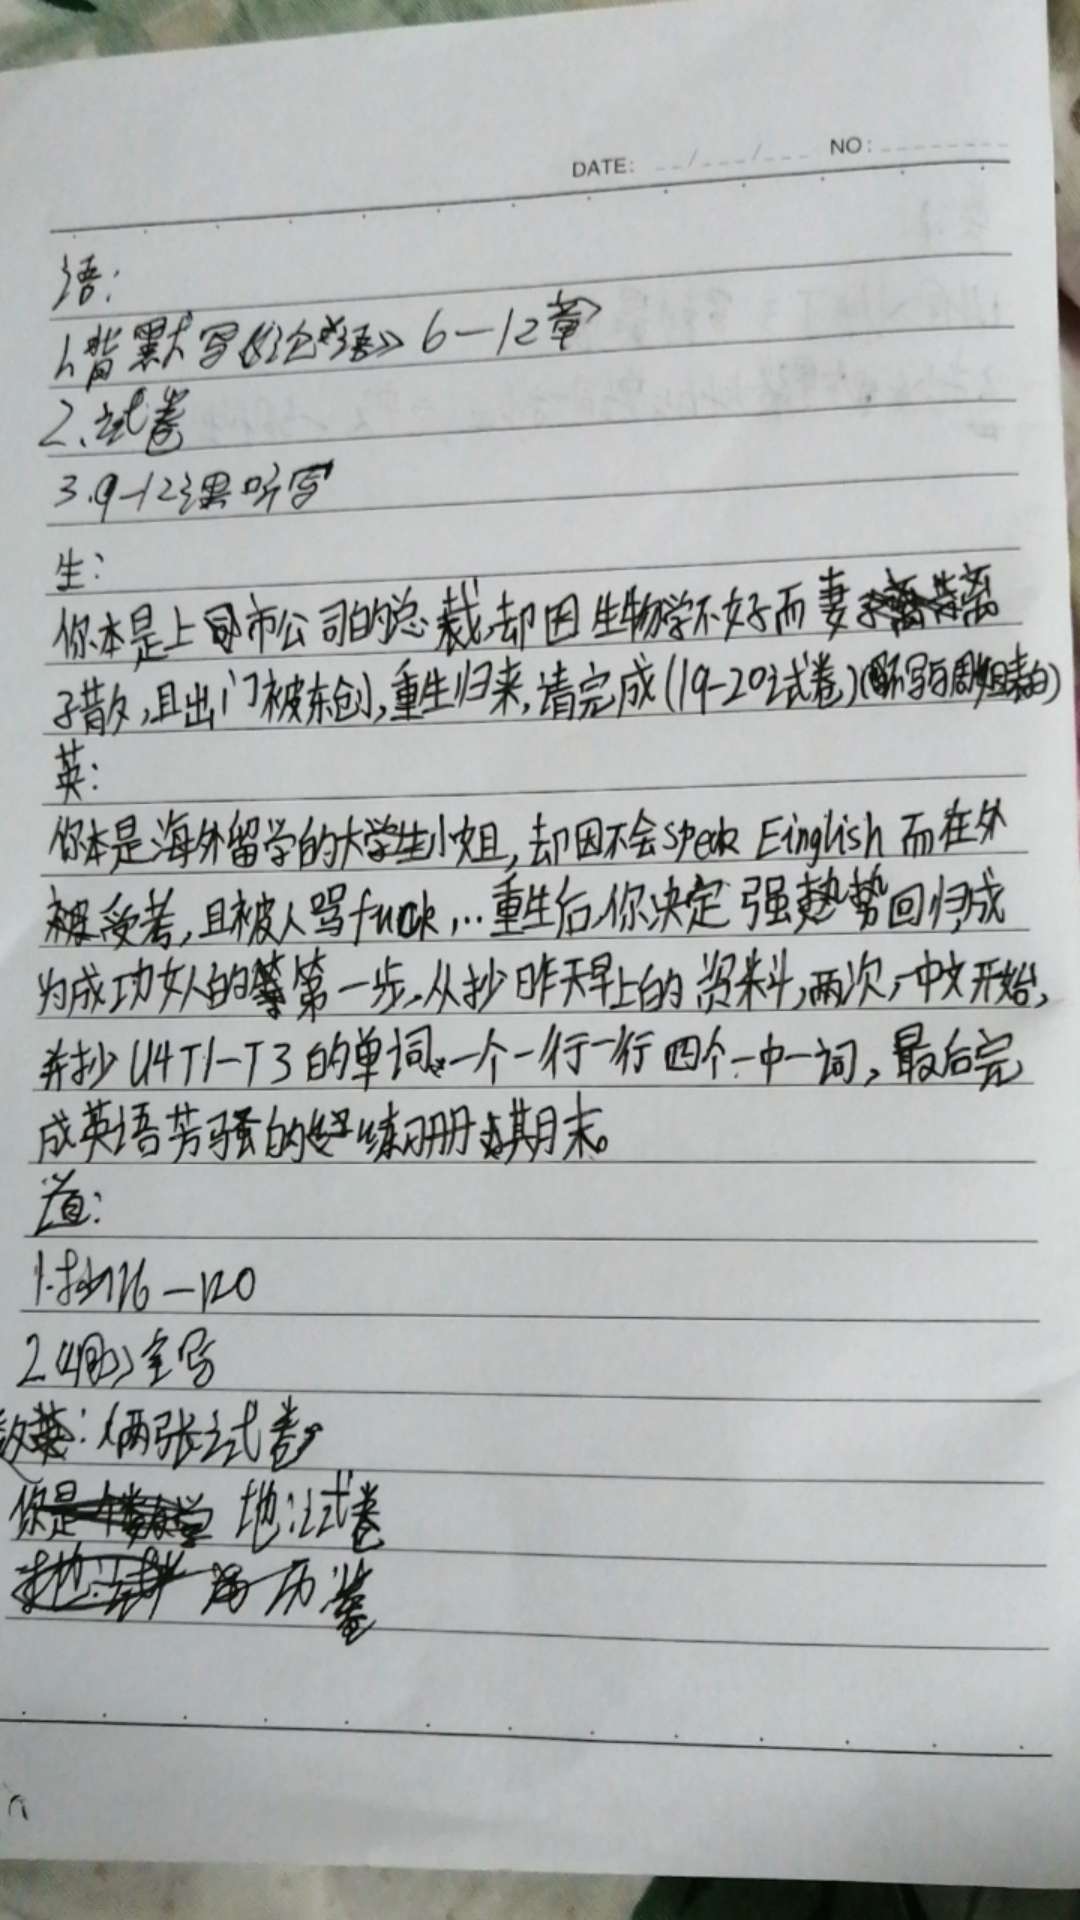 DATE: __/___/___ NO:
语:
1.背默写《论语》6—12章
2.试卷
3.9—12课听写
生:
你本是上市公司的总裁,却因生物学不好而妻离
子散,且出门被东创,重生归来,请完成(19-20试卷)
英:
你本是海外留学的大学生小姐,却因不会speak Einglish 而在外
被受考,且被人骂fuck,…重生后,你决定强势回归成
为成功女人的第一步,从抄昨天早上的资料,两次,中文开始,
并抄U4T1—T3的单词,一个一行一行四个一中一词,最后完
成英语芳骚的练习册期末。
道:
1.抄116—120
2.全写
:俩张试卷
地:试卷
历:卷